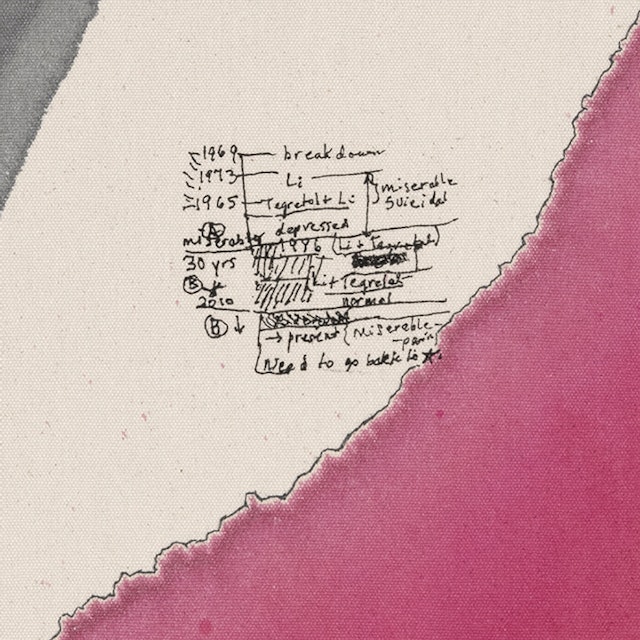 1969 breakdown
1973 Li
miserable
1965 Tegretol + Li
suicidal
A depressed
miserable 1996 (Li + Tegretol)
30 yrs
B Li + Tegretol
2010 normal
B ↓
→ present (miserable-
pain
Need to go back to